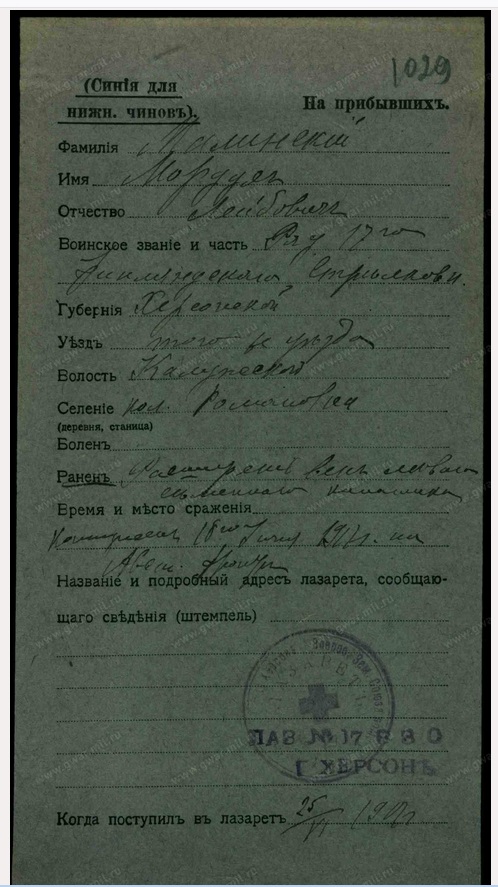 1029
(Синія для
нижн. чиновъ).
На прибывшихъ.
Фамилія Малинскій
Имя Мордухъ
Отчество Лейбовичъ
Воинское званіе и часть Ряд 17го
Финляндского Стрѣлков п.
Губернія Херсонской
Уѣздъ того же уѣзда
Волость Калужской
Селеніе кол. Романовка
(деревня, станица)
Боленъ
Раненъ Расширеніе венъ лѣваго
сѣменного канатика
Время и мѣсто сраженія
18го 1917г. на
Названіе и подробный адресъ лазарета, сообщаю-
щаго свѣдѣнія (штемпель)
ЛАЗАРЕТЪ
ЛАЗ № 17 В З О
Г ХЕРСОНЪ
Когда поступилъ въ лазаретъ 25/VI 1917г
www.gwar.mil.ru